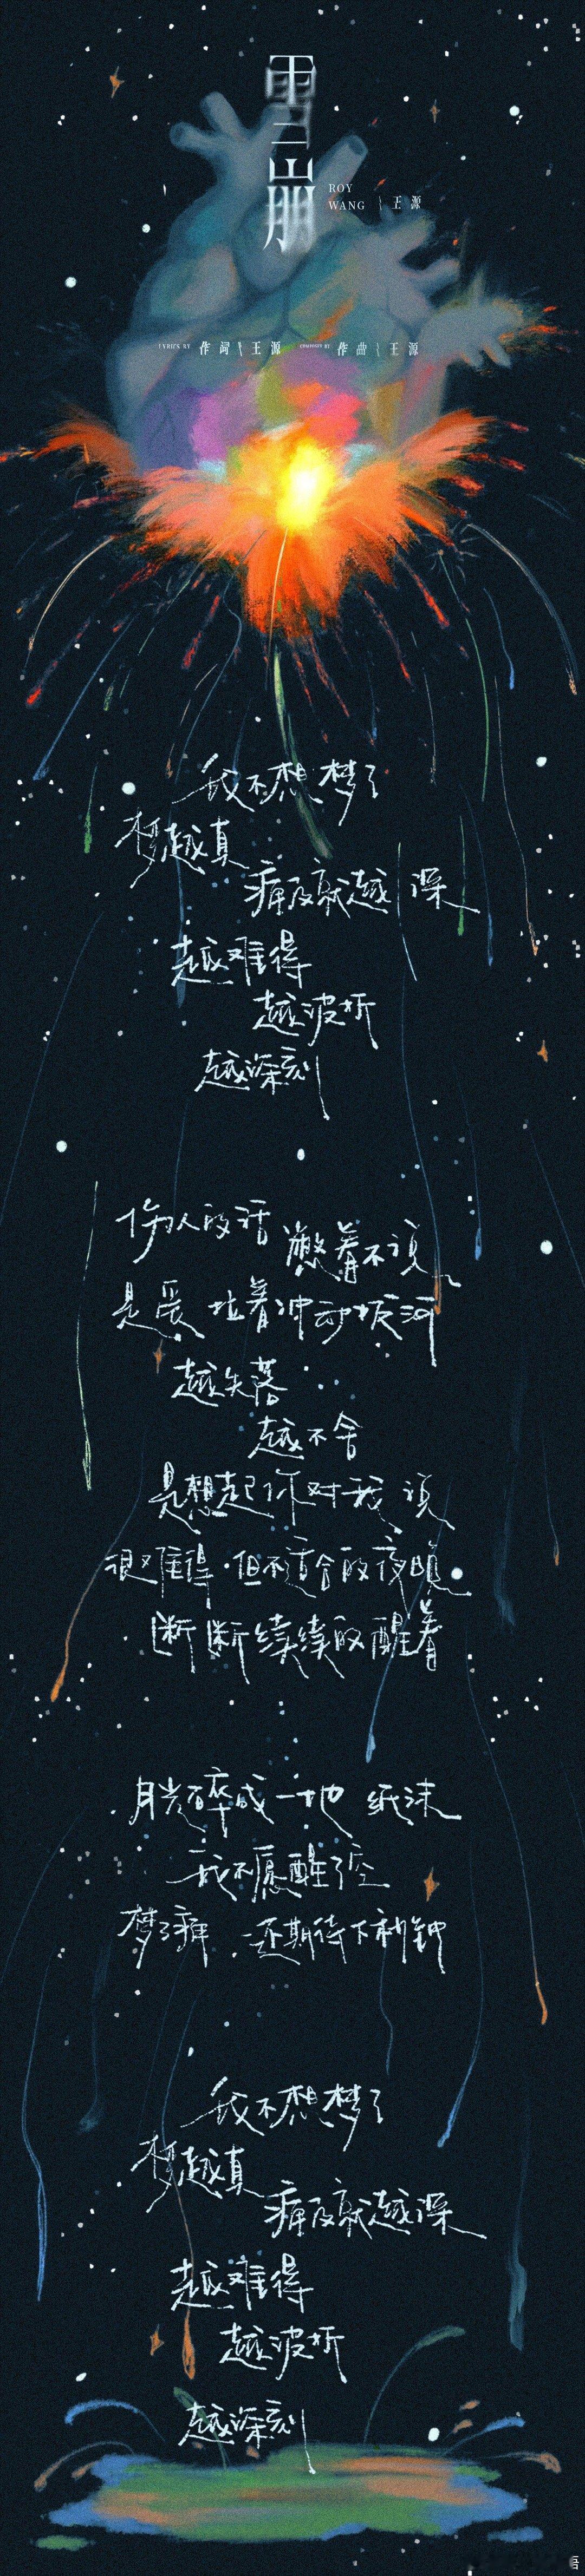 雪崩
ROY
WANG \ 王源
LYRICS BY 作词 \ 王源 COMPOSED BY 作曲 \ 王源
我不想梦了
梦越真
痛及就越深
越难得
越波折
越深刻
伤人的话 憋着不说
是爱拉着冲动拔河
越失落
越不舍
是想起你对我说
很难得·但不适合的夜晚
断断续续的醒着
月光碎成一地纸沫
我不愿醒了空
梦了痛·还期待下秒钟
我不想梦了
梦越真
痛及就越深
越难得
越波折
越深刻